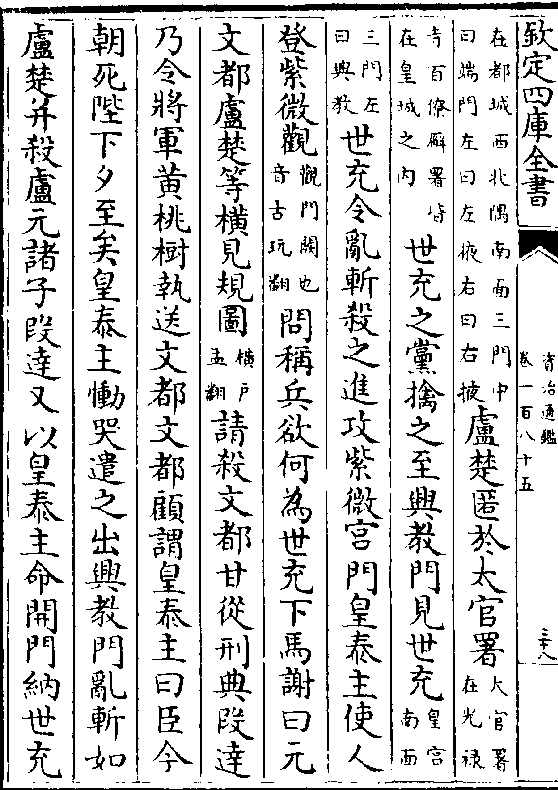 欽定四庫全書
資治通鑑
卷一百八十五
三十八
在都城西北隅南面三門中
曰端門左曰左掖右曰右掖
盧楚匿於太官署
大官署
在光禄
寺百僚廨署皆
在皇城之内
世充之黨擒之至興教門見世充
皇宫
南面
三門左
曰興教
世充令亂斬殺之進攻紫微宫門皇泰主使人
登紫微觀
觀門闕也
音古玩翻
問稱兵欲何為世充下馬謝曰元
文都盧楚等橫見規圖
橫戸
孟翻
請殺文都甘從刑典段達
乃令將軍黄桃樹執送文都文都顧謂皇泰主曰臣今
朝死陛下夕至矣皇泰主慟哭遣之出興教門亂斬如
盧楚并殺盧元諸子段達又以皇泰主命開門納世充